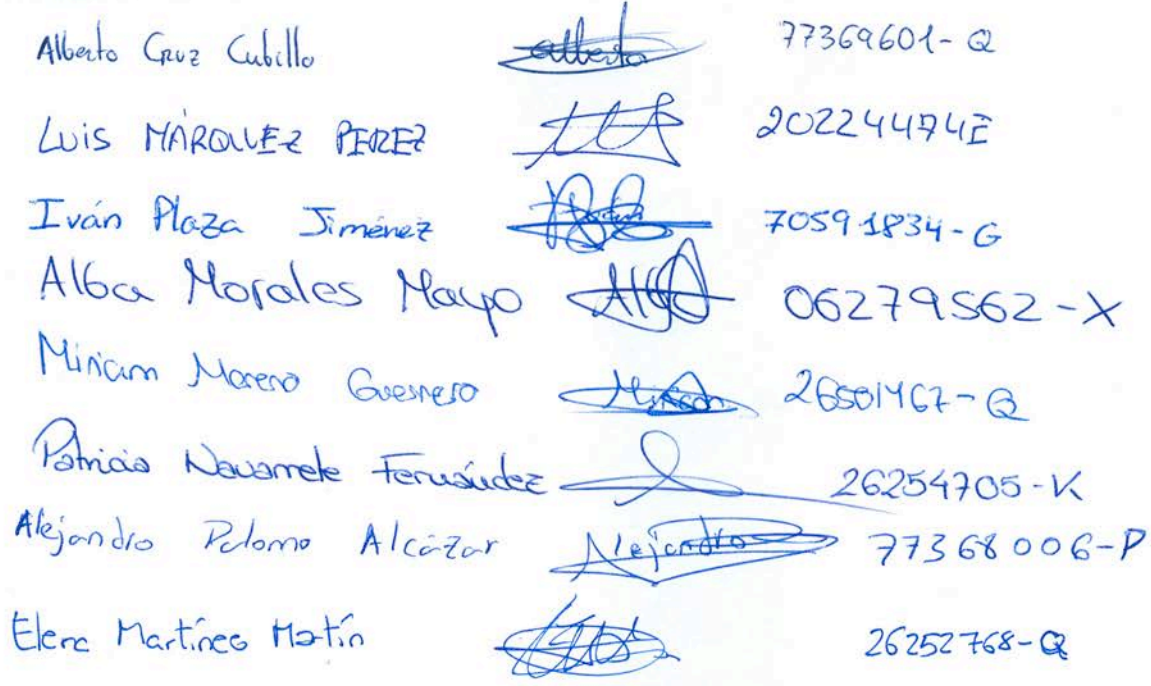 Alberto Cruz Cubillo alberto 77369601-Q
LUIS MÁRQUEZ PEREZ 20224474E
Iván Plaza Jiménez 70591834-G
Alba Morales Mayo Alba 06279562-X
Miriam Moreno Guerrero Miriam 26501467-Q
Patricia Navarrete Fernández 26254705-K
Alejandro Palomo Alcázar Alejandro 77368006-P
Elena Martínez Martín 26252768-Q